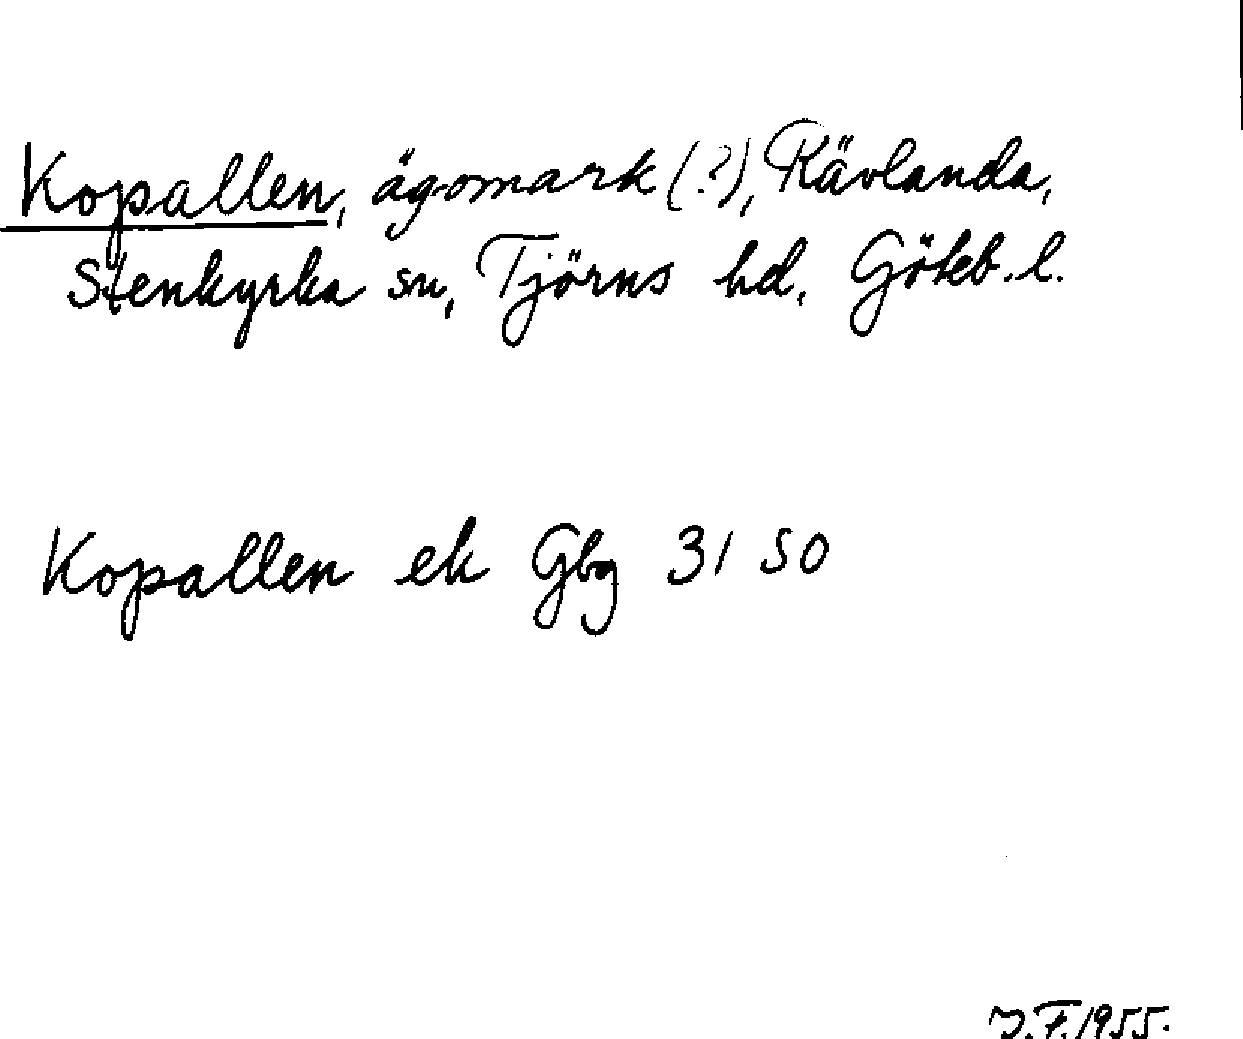 Kopallen, ägomark (?), Rävlanda,
Stenkyrka sn, Tjörns hd, Göteb. l.
Kopallen ek Gbg 31 SO
J.F. 1955.